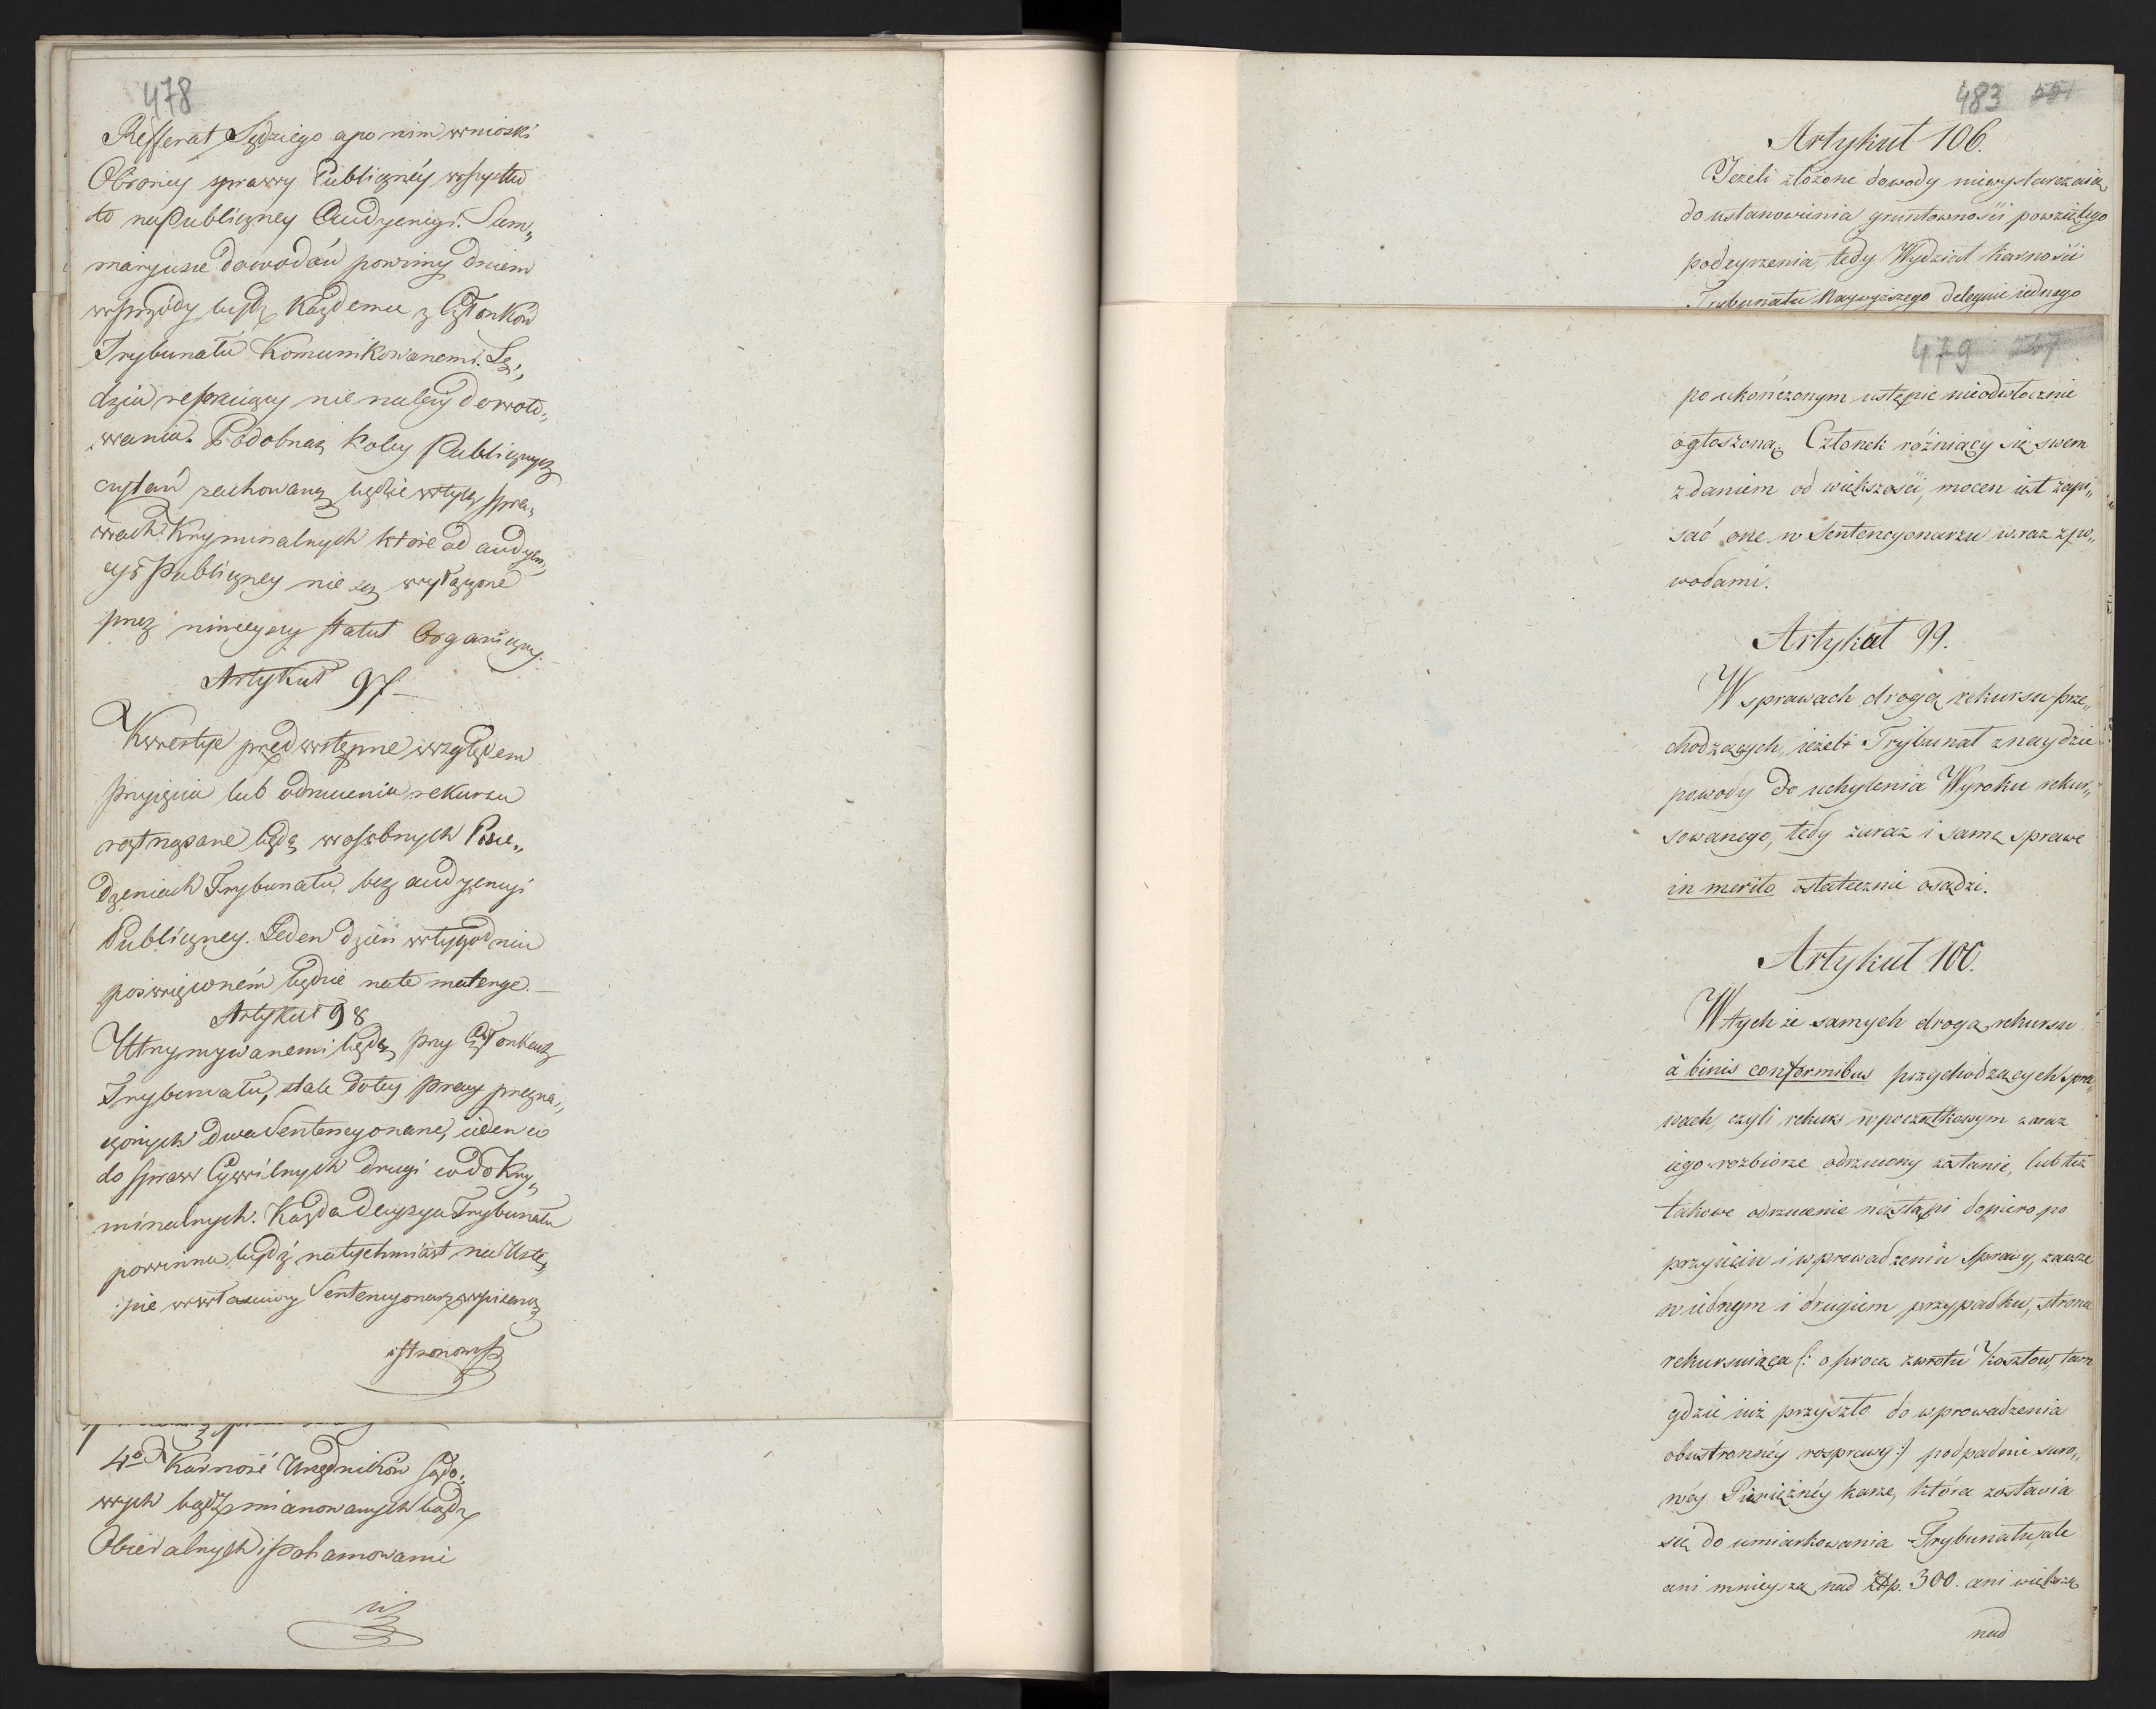 478
Refferat Sędziego a po nim wnioski
Obrońcy sprawy Publicznéy wszystko
to na Publiczney Audyencyi. Sum„
maryusze dowodów powinny dniem
wprzódy bydź każdemu z Członków
Trybunału Komunikowanemi. Sę„
dzia referuiący nie należy do woto„
wania. Podobnaż koléy Publicznych
czytań zachowaną będzie w tych spra„
wach Kryminalnych które od audyen„
cyi Publiczney nie są wyłączone
przez ninieyszy statut Organiczny.
Artykuł 97
Kwestye przedwstępne względem
przyięcia lub odrzucenia rekursu
roztrząsane będą w osobnych Posie„
dzeniach Trybunału, bez audyencyi
Publiczney. Jeden dzień w tygodniu
poświęconém będzie na te materye.
Artykuł 98
Utrzymywanemi będą przy Członkach
Trybunału, stale do tey pracy przezna„
czonych dwa Sentencyonarze, ieden co
do spraw Cywilnych drugi co do Kry„
minalnych. Każda decyzya Trybunału
powinna bydź natychmiast na Ustę„
pie w właściwy Sentencyonarz wpisaną
4o Karność Urzędników sądo„
wych bądź mianowanych bądź
Obieralnych i pohamowanie
483
Artykuł 106.
Jeżeli złożone dowody niewystarczaią
do ustanowienia gruntowności powziętego
podeyrzenia, tedy Wydział karności
Trybunału Naywyższego deleguie iednego
479
po ukończonym ustępie nieodwłocznie
ogłoszoną. Członek różniący się swem
zdaniem od większości, mocen iest zapi„
sać one w Sentencyonarzu wraz z po„
wodami.
Artykuł 99.
W sprawach drogą rekursu prze„
chodzących, ieżeli Trybunał znaydzie
powody do uchylenia Wyroku rekur„
sowanego, tedy zaraz i samą sprawę
in merito ostatecznie osądzi.
Artykuł 100.
W tych że samych drogą rekursu
à binis conformibus przychodzących spra„
wach, czyli rekurs w początkowym zaraz
iego rozbiorze odrzucony zostanie, lub też
takowe odrzucenie nastąpi dopiero po
przyięciu i wprowadzeniu Sprawy, zawsze
w iednym i drugiem przypadku, strona
rekursuiąca (: oprocz zwrotu Kosztow, tam
gdzie iuż przyszło do wprowadzenia
obustronnéy rosprawy :) podpadnie suro„
wéy Pieniężnéy karze, która zostawia
się do umiarkowania Trybunału, ale
ani mnieysza nad Złp. 300. ani większa
nad